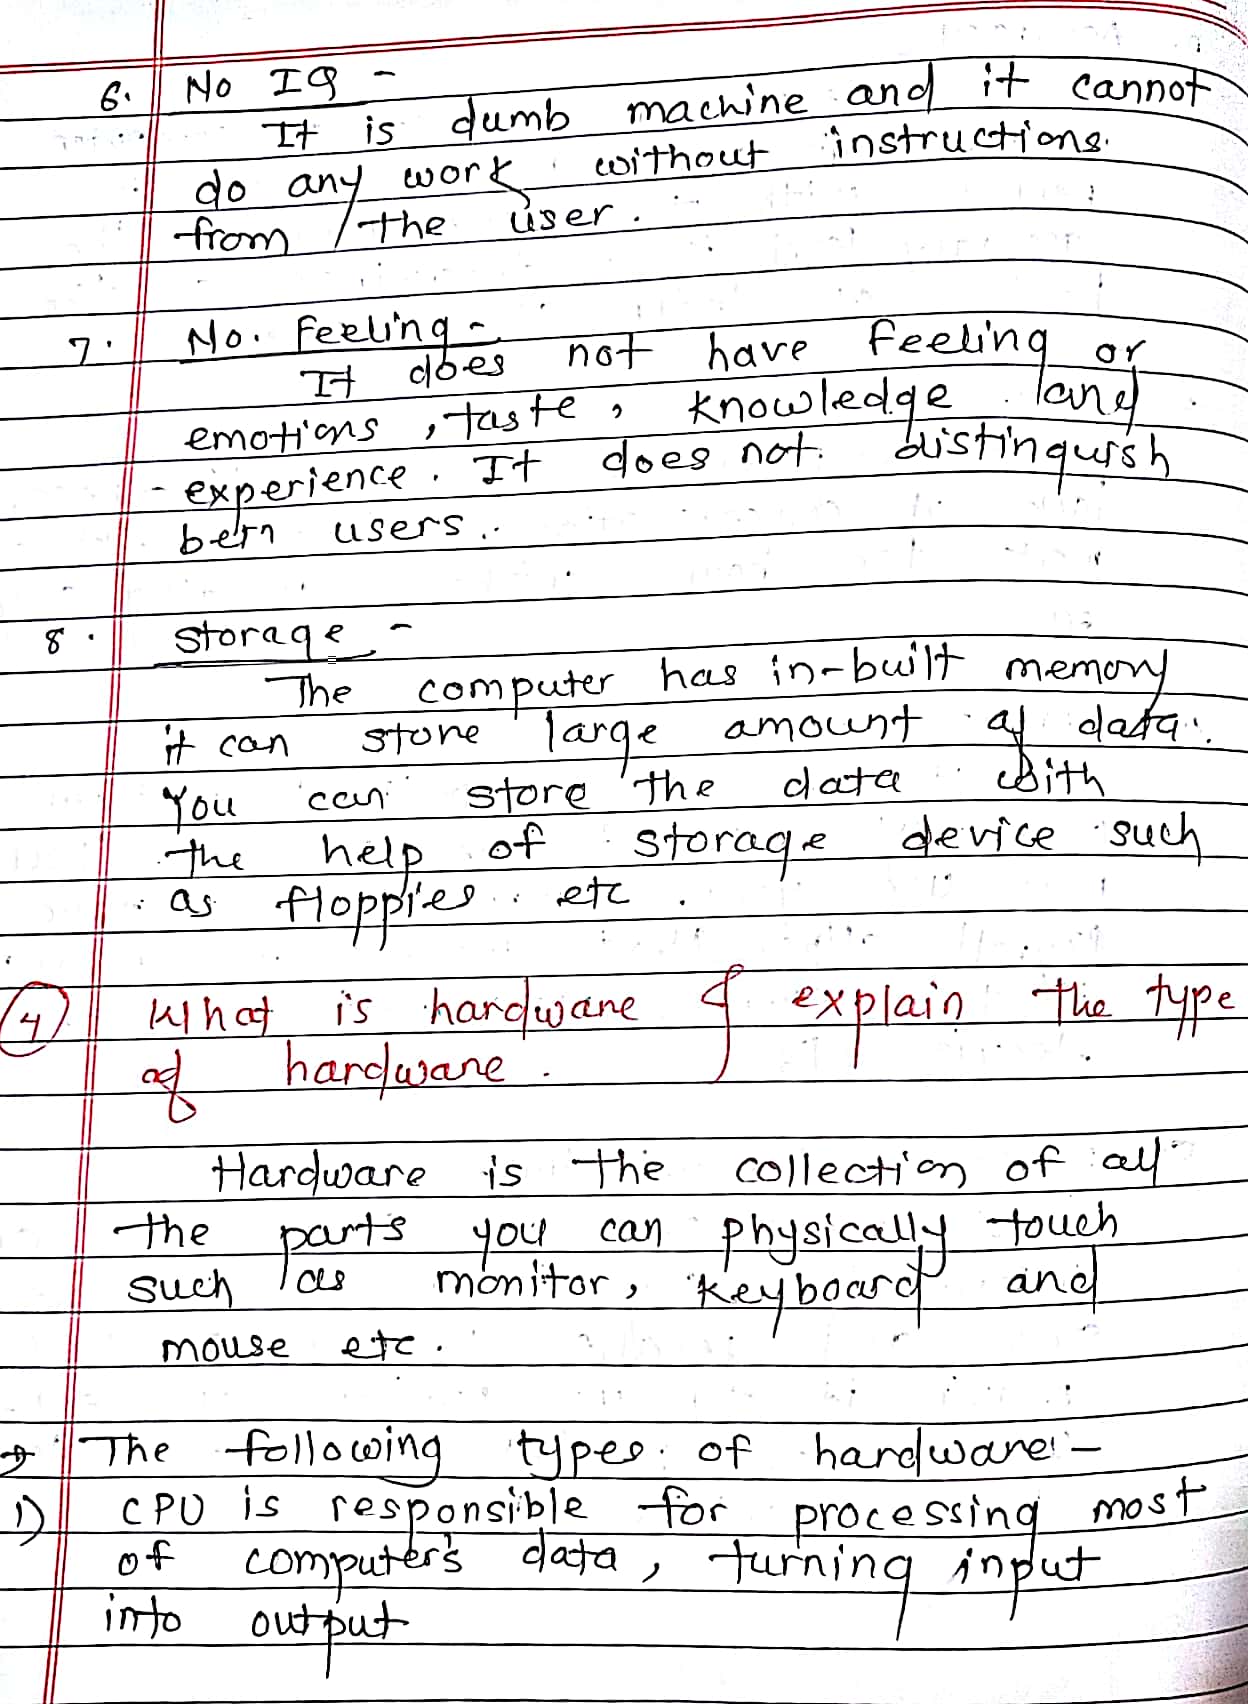 6. No IQ -
It is dumb machine and it cannot
do any work without instructions.
from the user.
7. No. Feeling -
It does not have feeling or
emotions, taste, knowledge and
experience. It does not. distinguish
betn users.
8. Storage -
The computer has in-built memory
it can store large amount of data.
You can store the data with
the help of storage device such
as floppies etc.
(4) What is hardware & explain the type
of hardware.
Hardware is the collection of all
the parts you can physically touch
such as monitor, keyboard and
mouse etc.
The following types of hardware:-
1) CPU is responsible for processing most
of computer's data, turning input
into output